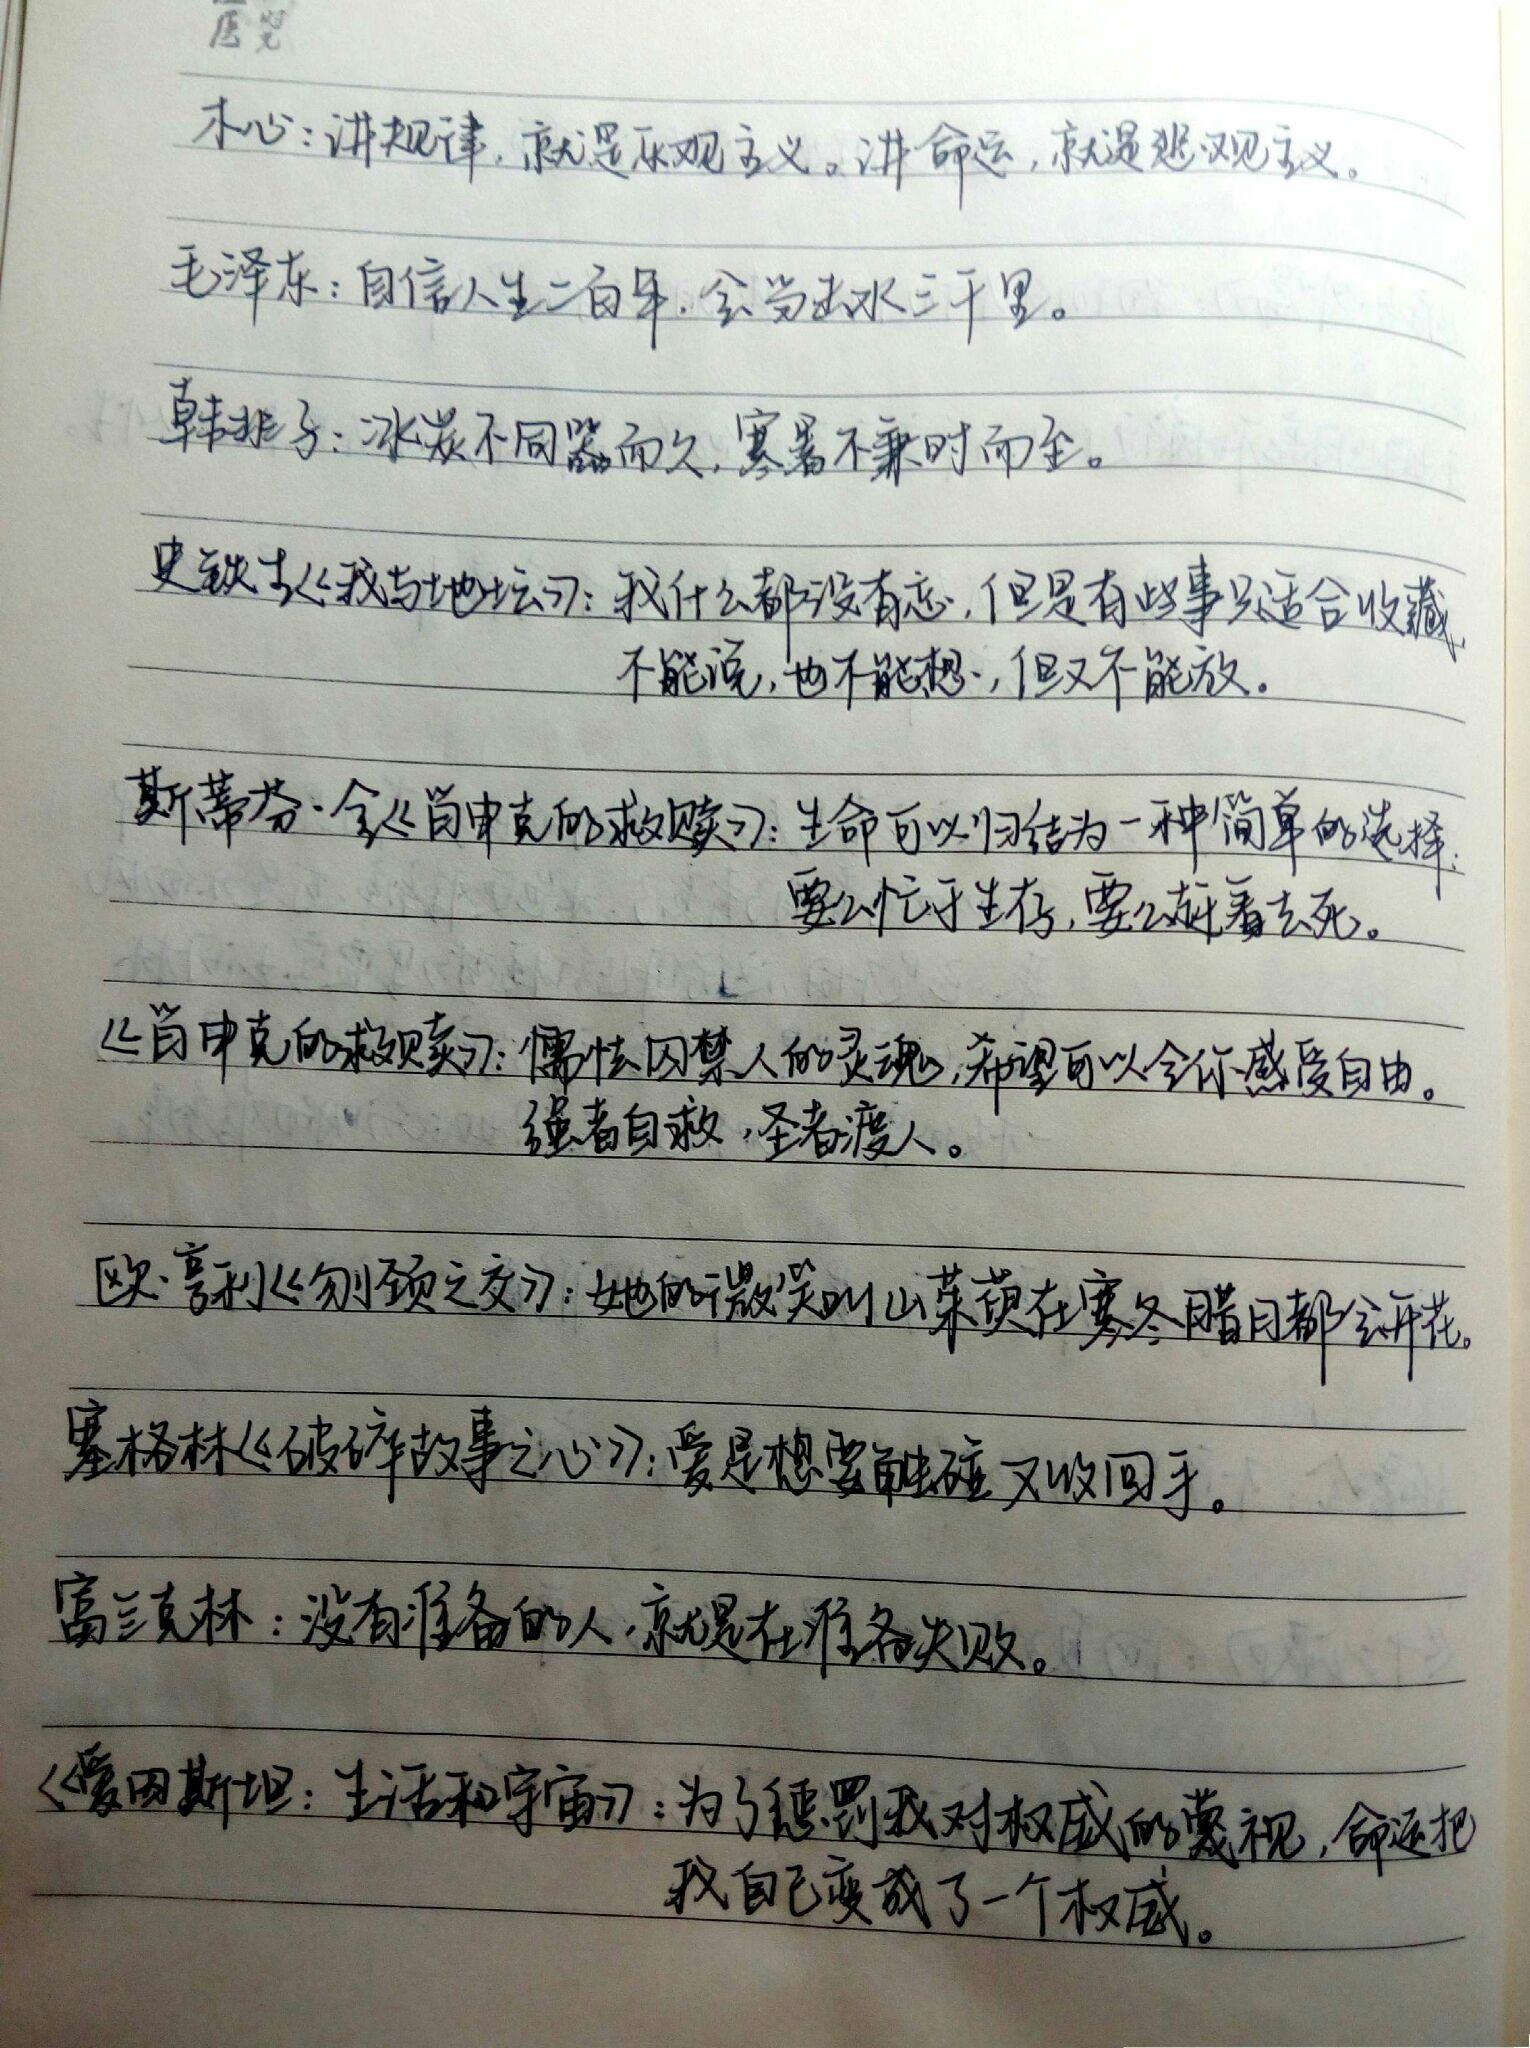 木心：讲规律，就是乐观主义。讲命运，就是悲观主义。
毛泽东：自信人生二百年，会当击水三千里。
韩非子：冰炭不同器而久，寒暑不兼时而至。
史铁生《我与地坛》：我什么都没有忘，但是有些事只适合收藏，
不能说，也不能想，但又不能放。
斯蒂芬·金《肖申克的救赎》：生命可以归结为一种简单的选择：
要么忙于生存，要么赶着去死。
《肖申克的救赎》：懦怯囚禁人的灵魂，希望可以令你感受自由。
强者自救，圣者渡人。
欧·亨利《刎颈之交》：她的微笑叫山茱萸在寒冬腊月都会开花。
塞格林《破碎故事之心》：爱是想要触碰又收回手。
富兰克林：没有准备的人，就是在准备失败。
《爱因斯坦：生活和宇宙》：为了惩罚我对权威的蔑视，命运把
我自己变成了一个权威。